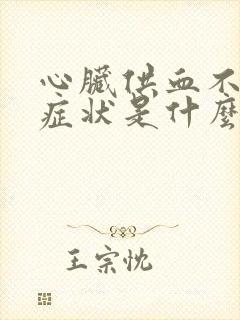 心臟供血不
症狀是什麼
王宗忱